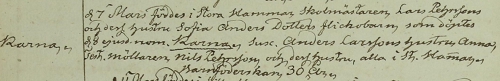 d 7 Mars föddes i Stora Hammar, Skolmästaren, Lars Pehrssons
och dess hustru Sofia Anders Dotters flickebarn, som döptes
Karna, d 8 ejus. nom. Karna, susc. Anders Larssons hustru, Anna,
test. möllaren, Nils Pehrsson, och dess hustru, alla i St. Hamar,
Barnföderskan, 30 år,